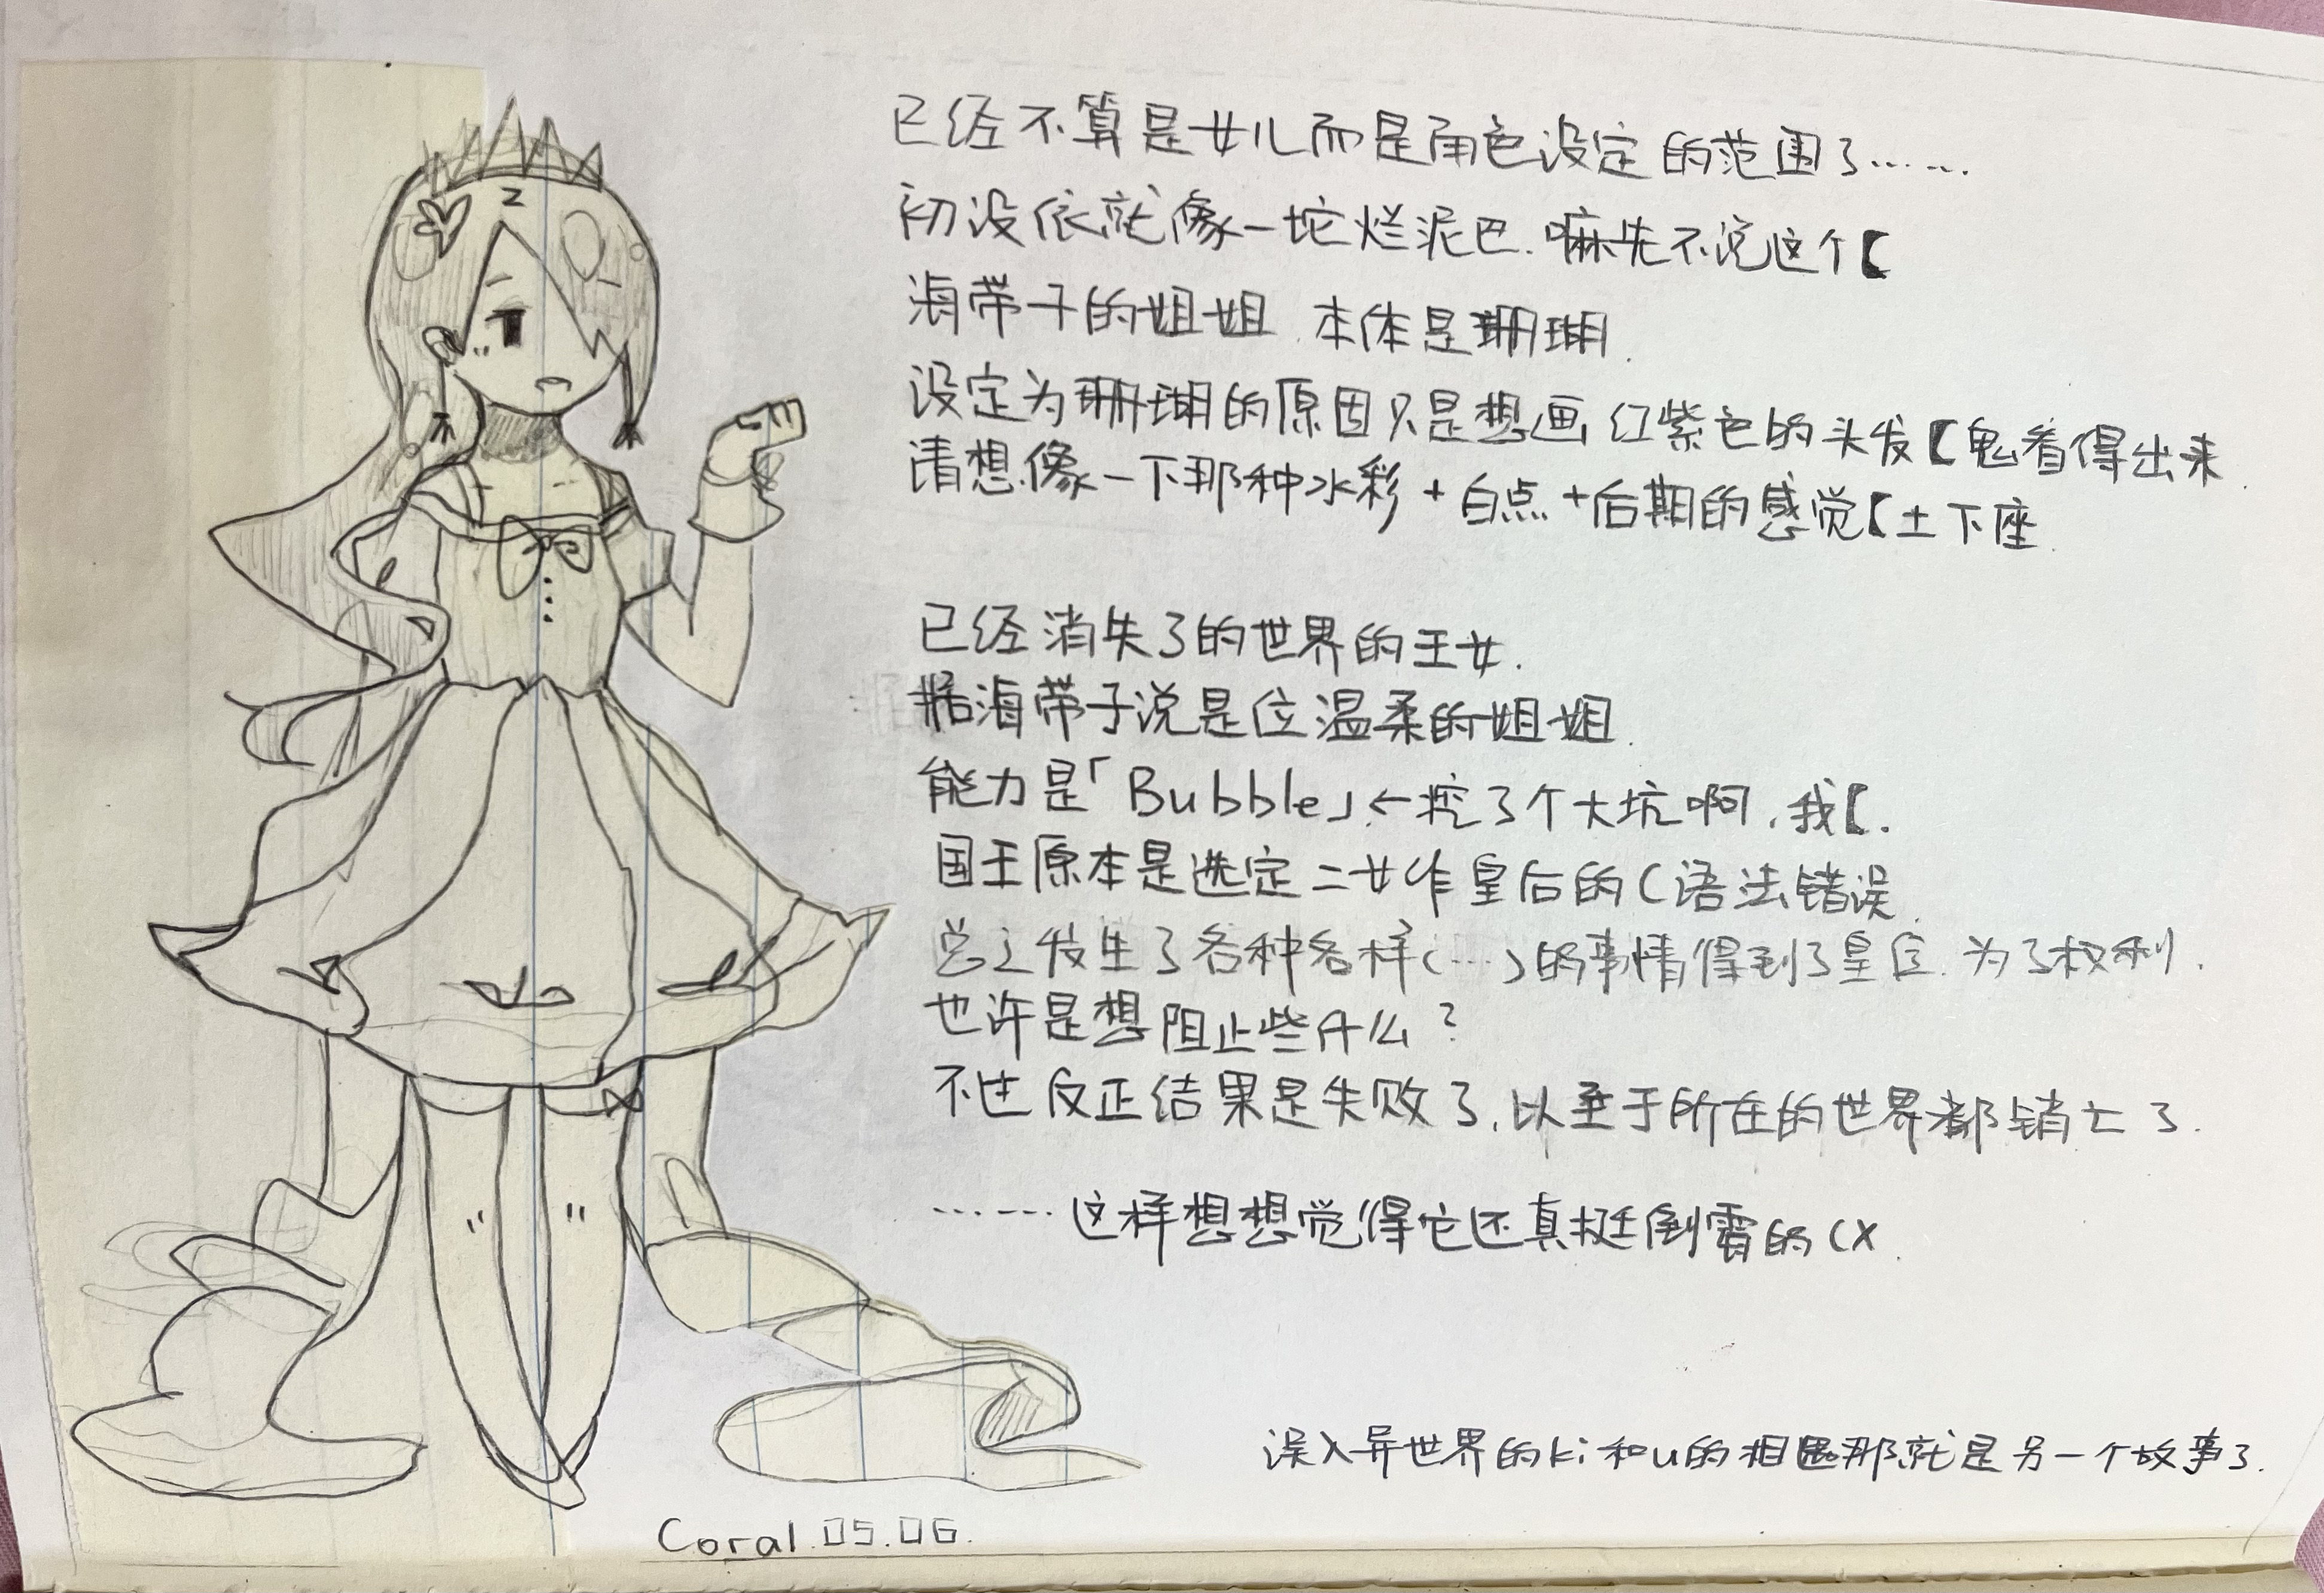 已经不算是女儿而是角色设定的范围了……
初设依就像一坨烂泥巴.嘛先不说这个【
海带子的姐姐.本体是珊瑚.
设定为珊瑚的原因只是想画红紫色的头发【鬼看得出来.
请想像一下那种水彩+白点+后期的感觉【土下座.
已经消失了的世界的王女.
据海带子说是位温柔的姐姐.
能力是「Bubble」←挖了个大坑啊,我【.
国王原本是选定二女作皇后的(语法错误.
总之发生了各种各样(…)的事情得到了皇位.为了权利.
也许是想阻止些什么?
不过反正结果是失败了,以至于所在的世界都销亡了.
……这样想想觉得它还真挺倒霉的(X.
误入异世界的ki和u的相遇那就是另一个故事了.
Coral.05.06.